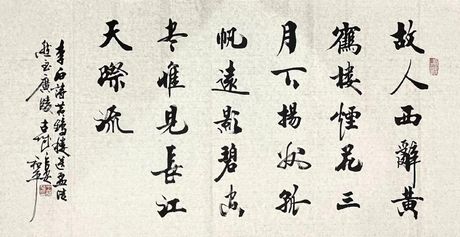 故人西辭黃
鶴樓煙花三
月下揚州孤
帆遠影碧空
尽惟見長江
天際流
李白詩黃鶴樓送孟浩
然之廣陵